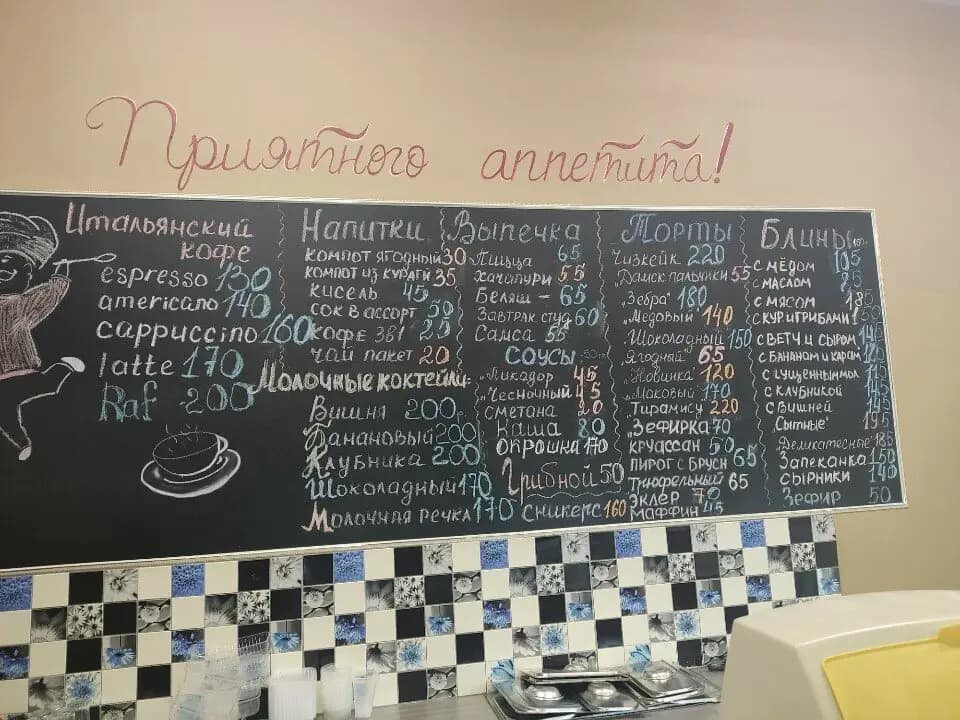 Приятного аппетита!
Итальянский
кофе
espresso 130
americano 140
cappuccino 160
latte 170
Raf 200
Напитки
компот ягодный 30
компот из кураги 35
кисель 45
сок в ассорт 50
кофе 3в1 25
чай пакет 20
Молочные коктейли:
Вишня 200
Банановый 200
Клубника 200
Шоколадный 170
Молочная речка 170
Выпечка
Пицца 65
хачапури 55
Беляш - 65
Завтрак студ 60
Самса 55
Соусы
"Пикадор 45
"Чесночный" 45
сметана 20
Каша 80
окрошка 170
Грибной 50
Сникерс 160
Торты
Чизкейк 220
"Дамск пальчики 55
"Зебра" 180
"Медовый" 140
"Шоколадный 150
Ягодный" 65
"Новинка" 120
"Маковый 170
"Тирамису 220
"Зефирка 70
круассан 50
пирог с брусн 65
Трюфельный 65
Эклер 70
Маффин 45
Блины
с мёдом 105
с маслом 85
с мясом 185
с кур и грибами
с ветч и сыром 145
с бананом и карам
с сгущенным мол
с клубникой
с Вишней
"Сытные" 195
"Деликатесные" 185
Запеканка 150
Сырники 140
Зефир 50